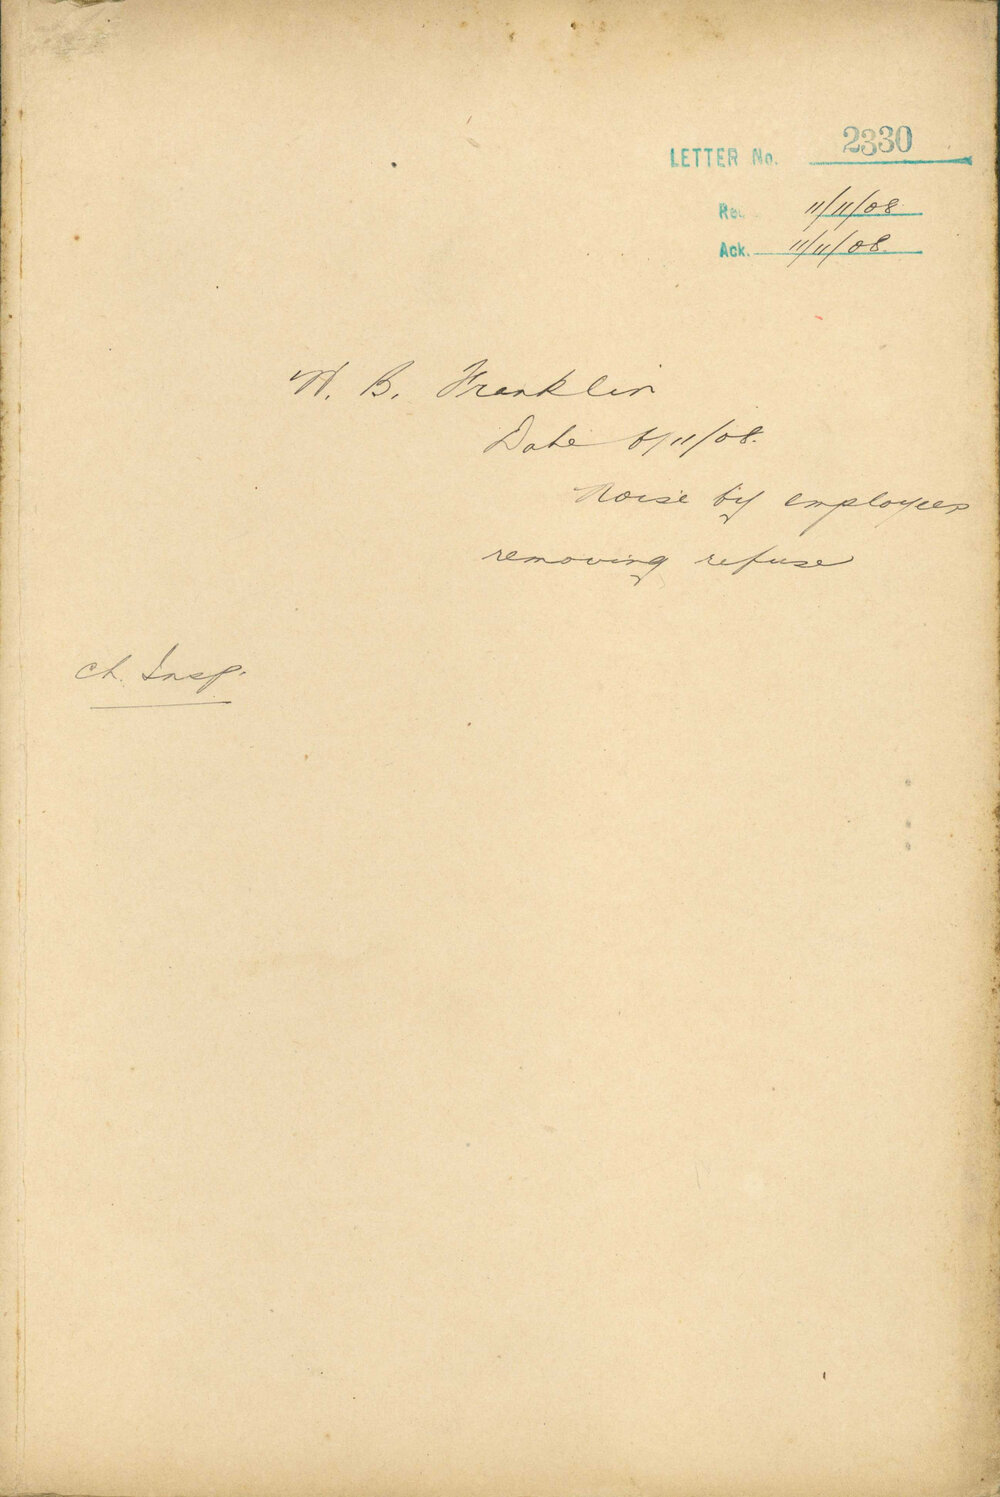 LETTER No. 2330
Rec. 11/11/08
Ack. 11/11/08.
W. B. Franklin
Date 6/11/08.
Noise by employees
removing refuse
Ch. Insp.